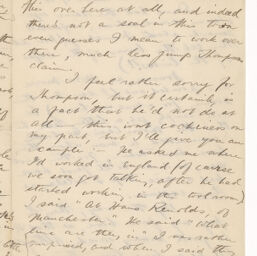 this over here at all, and indeed
there's not a soul in this town
even guesses I mean to work over
there, much less jump Thompson's
claim.
I feel rather sorry for
Thompson, but it certainly is
a fact that he'd not do at
all. This isn't cockiness on
my part, but I'll give you an
example. He asked me where
I'd worked in England (of course
we soon got talking, after he had
started working in the tool room)
I said "At Hans Renolds, of
Manchester." He said "What
line are they in?" I was rather
surprised, and when I said they